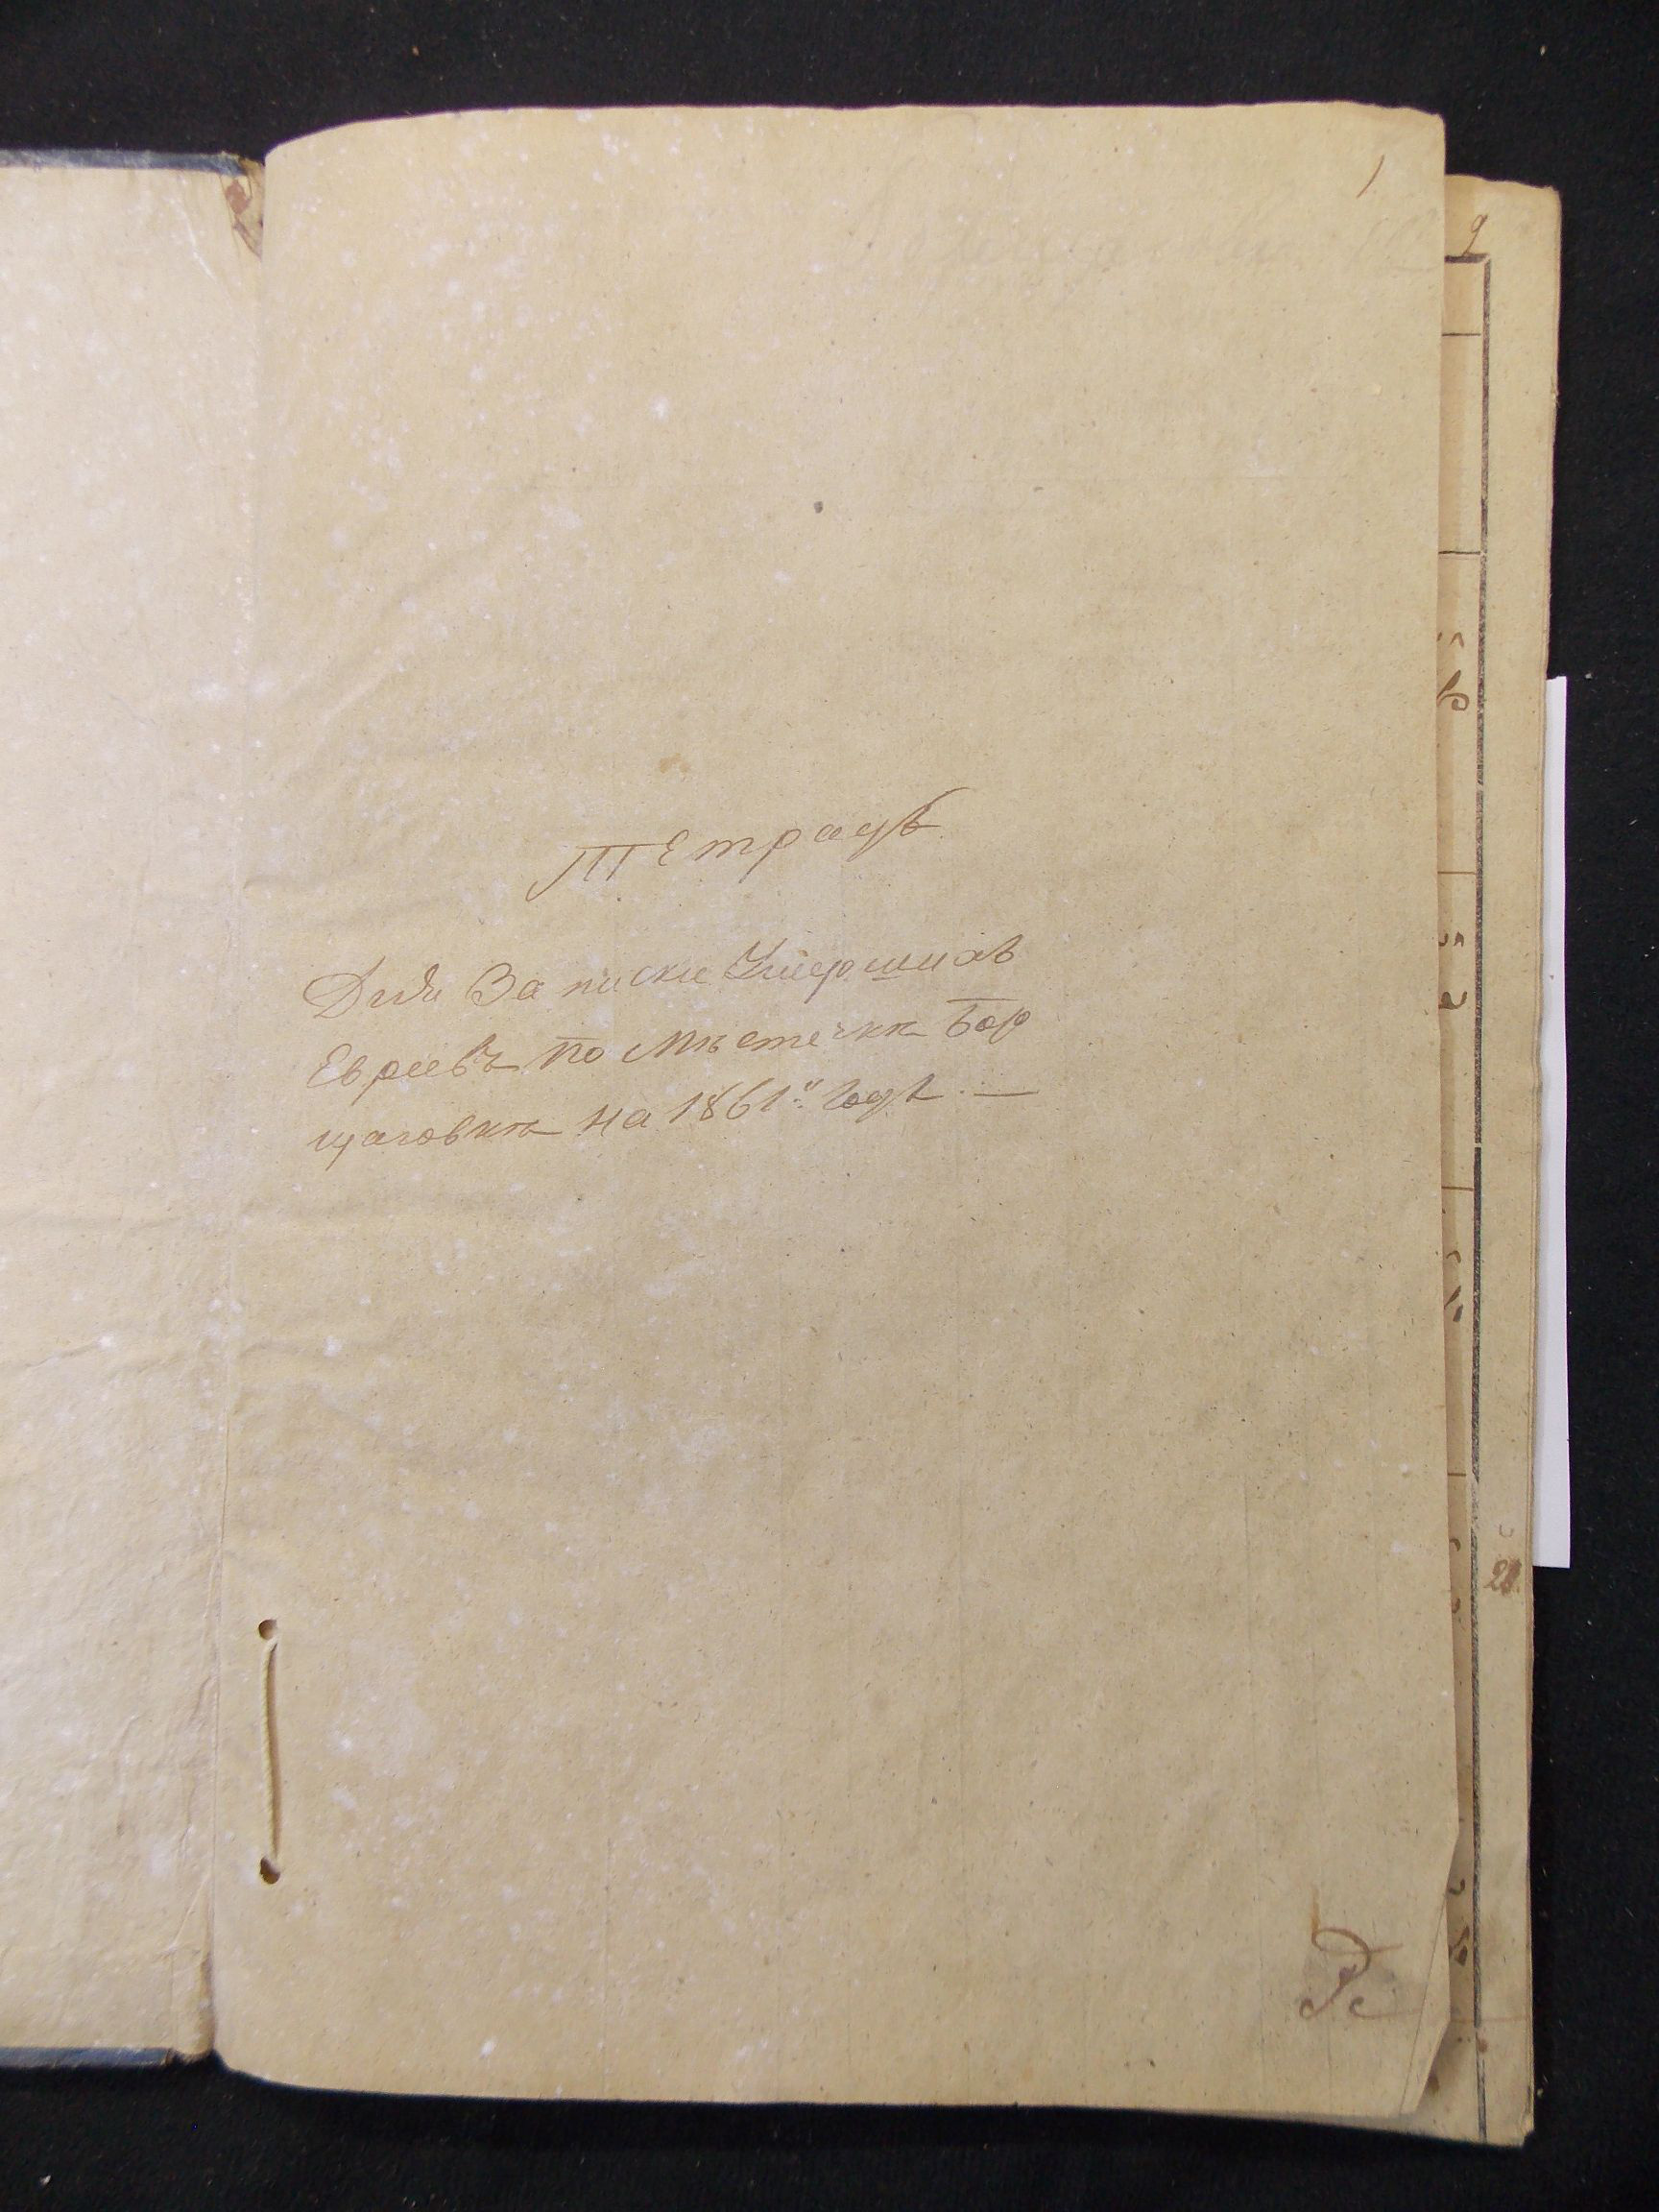 1
2
Тетрадь
Для Записки Умершихъ
Евреевъ по мѣстечкѣ Бор
щаговкѣ на 1861й Годъ. —
21